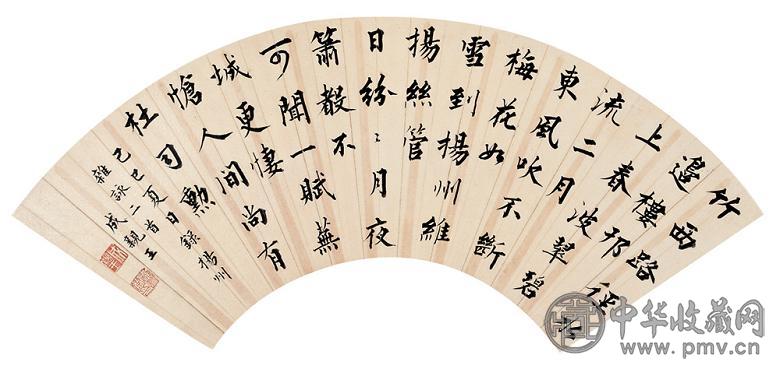 竹西路
邊樓
上春邗波翠碧
流二月
東風吹不斷
梅花如
雪到揚州維
揚絲管
日紛〻月夜
簫聲不
可聞一賦蕪
城更悽
愴人間尚有
杜司勳
己巳夏日錄揚州
雜詠二首
成親王
中华收藏网
www.pmv.cn